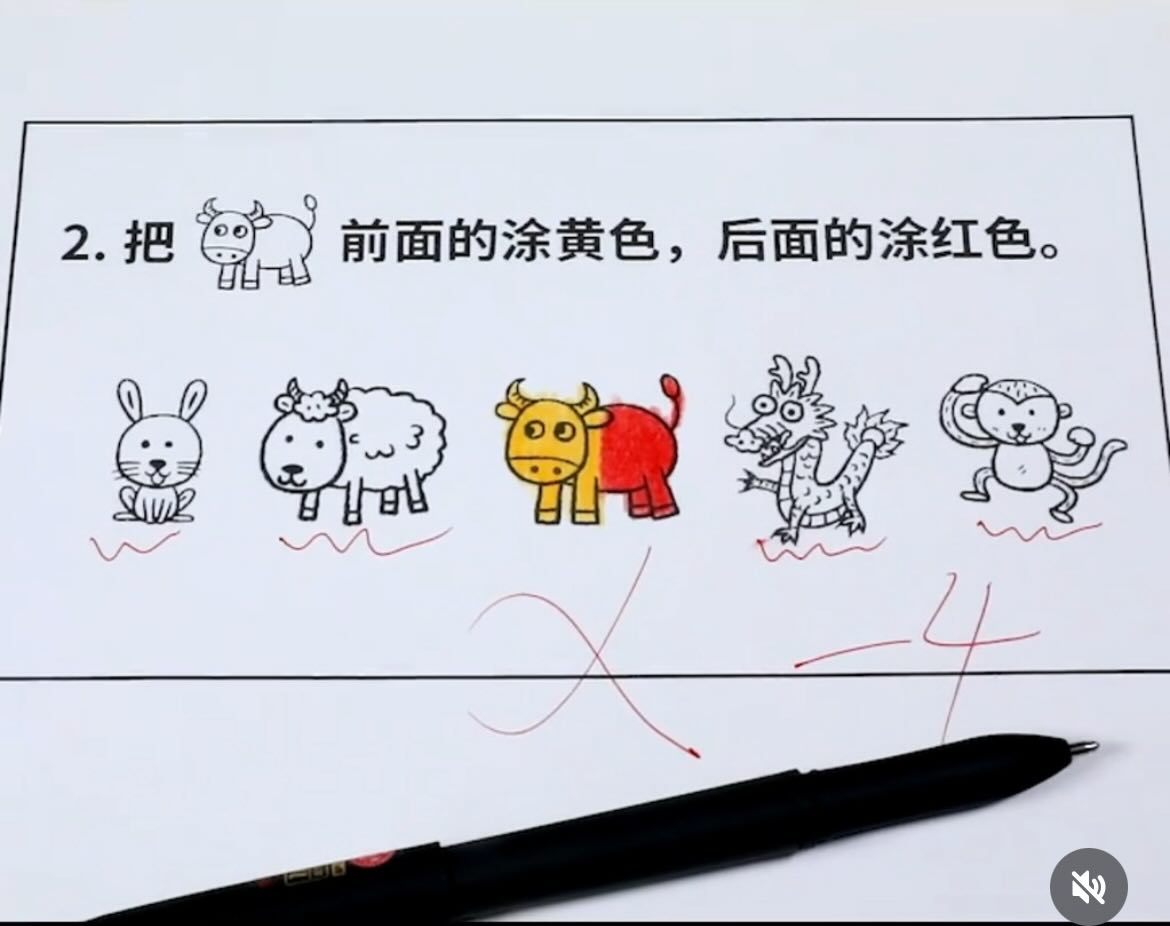 2. 把 前面的涂黄色，后面的涂红色。
-4